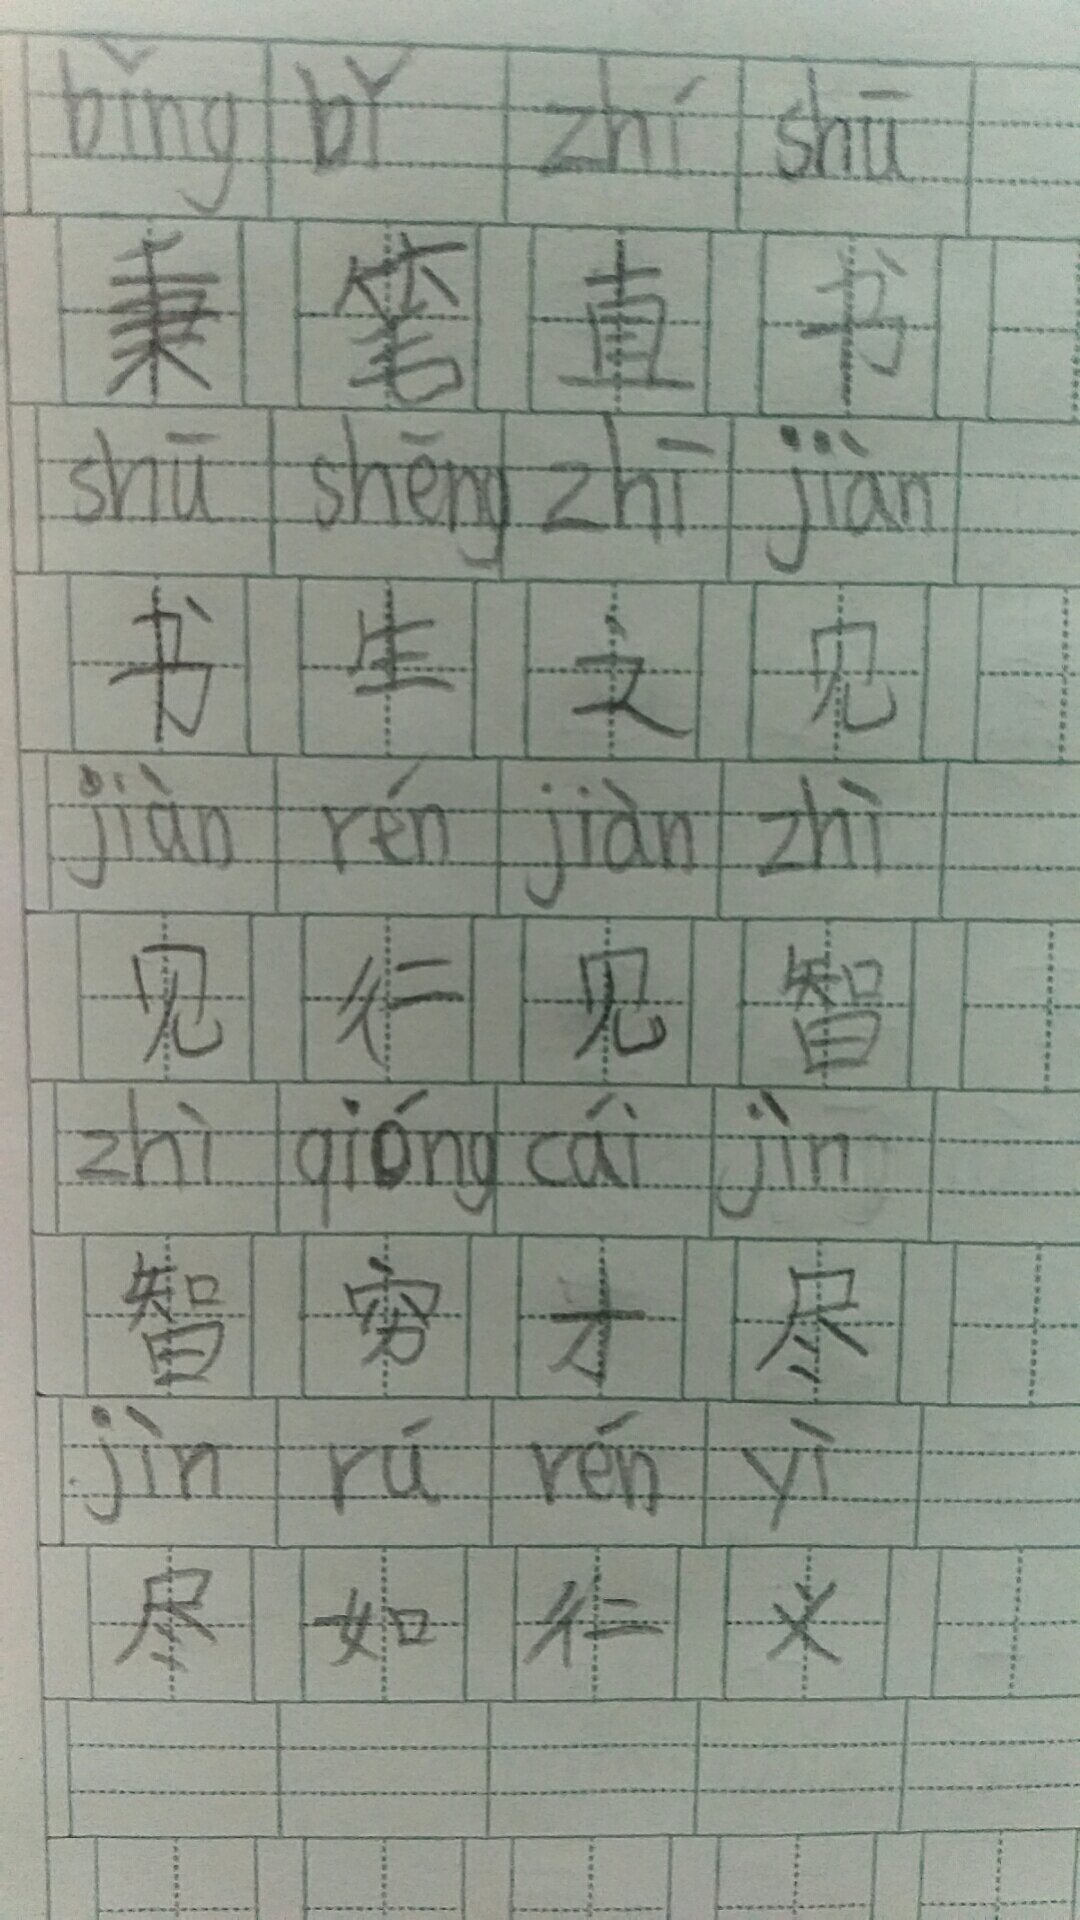 bǐng bǐ zhí shū
秉笔直书
shū shēng zhī jiàn
书生之见
jiàn rén jiàn zhì
见仁见智
zhì qióng cái jìn
智穷才尽
jìn rú rén yì
尽如仁义